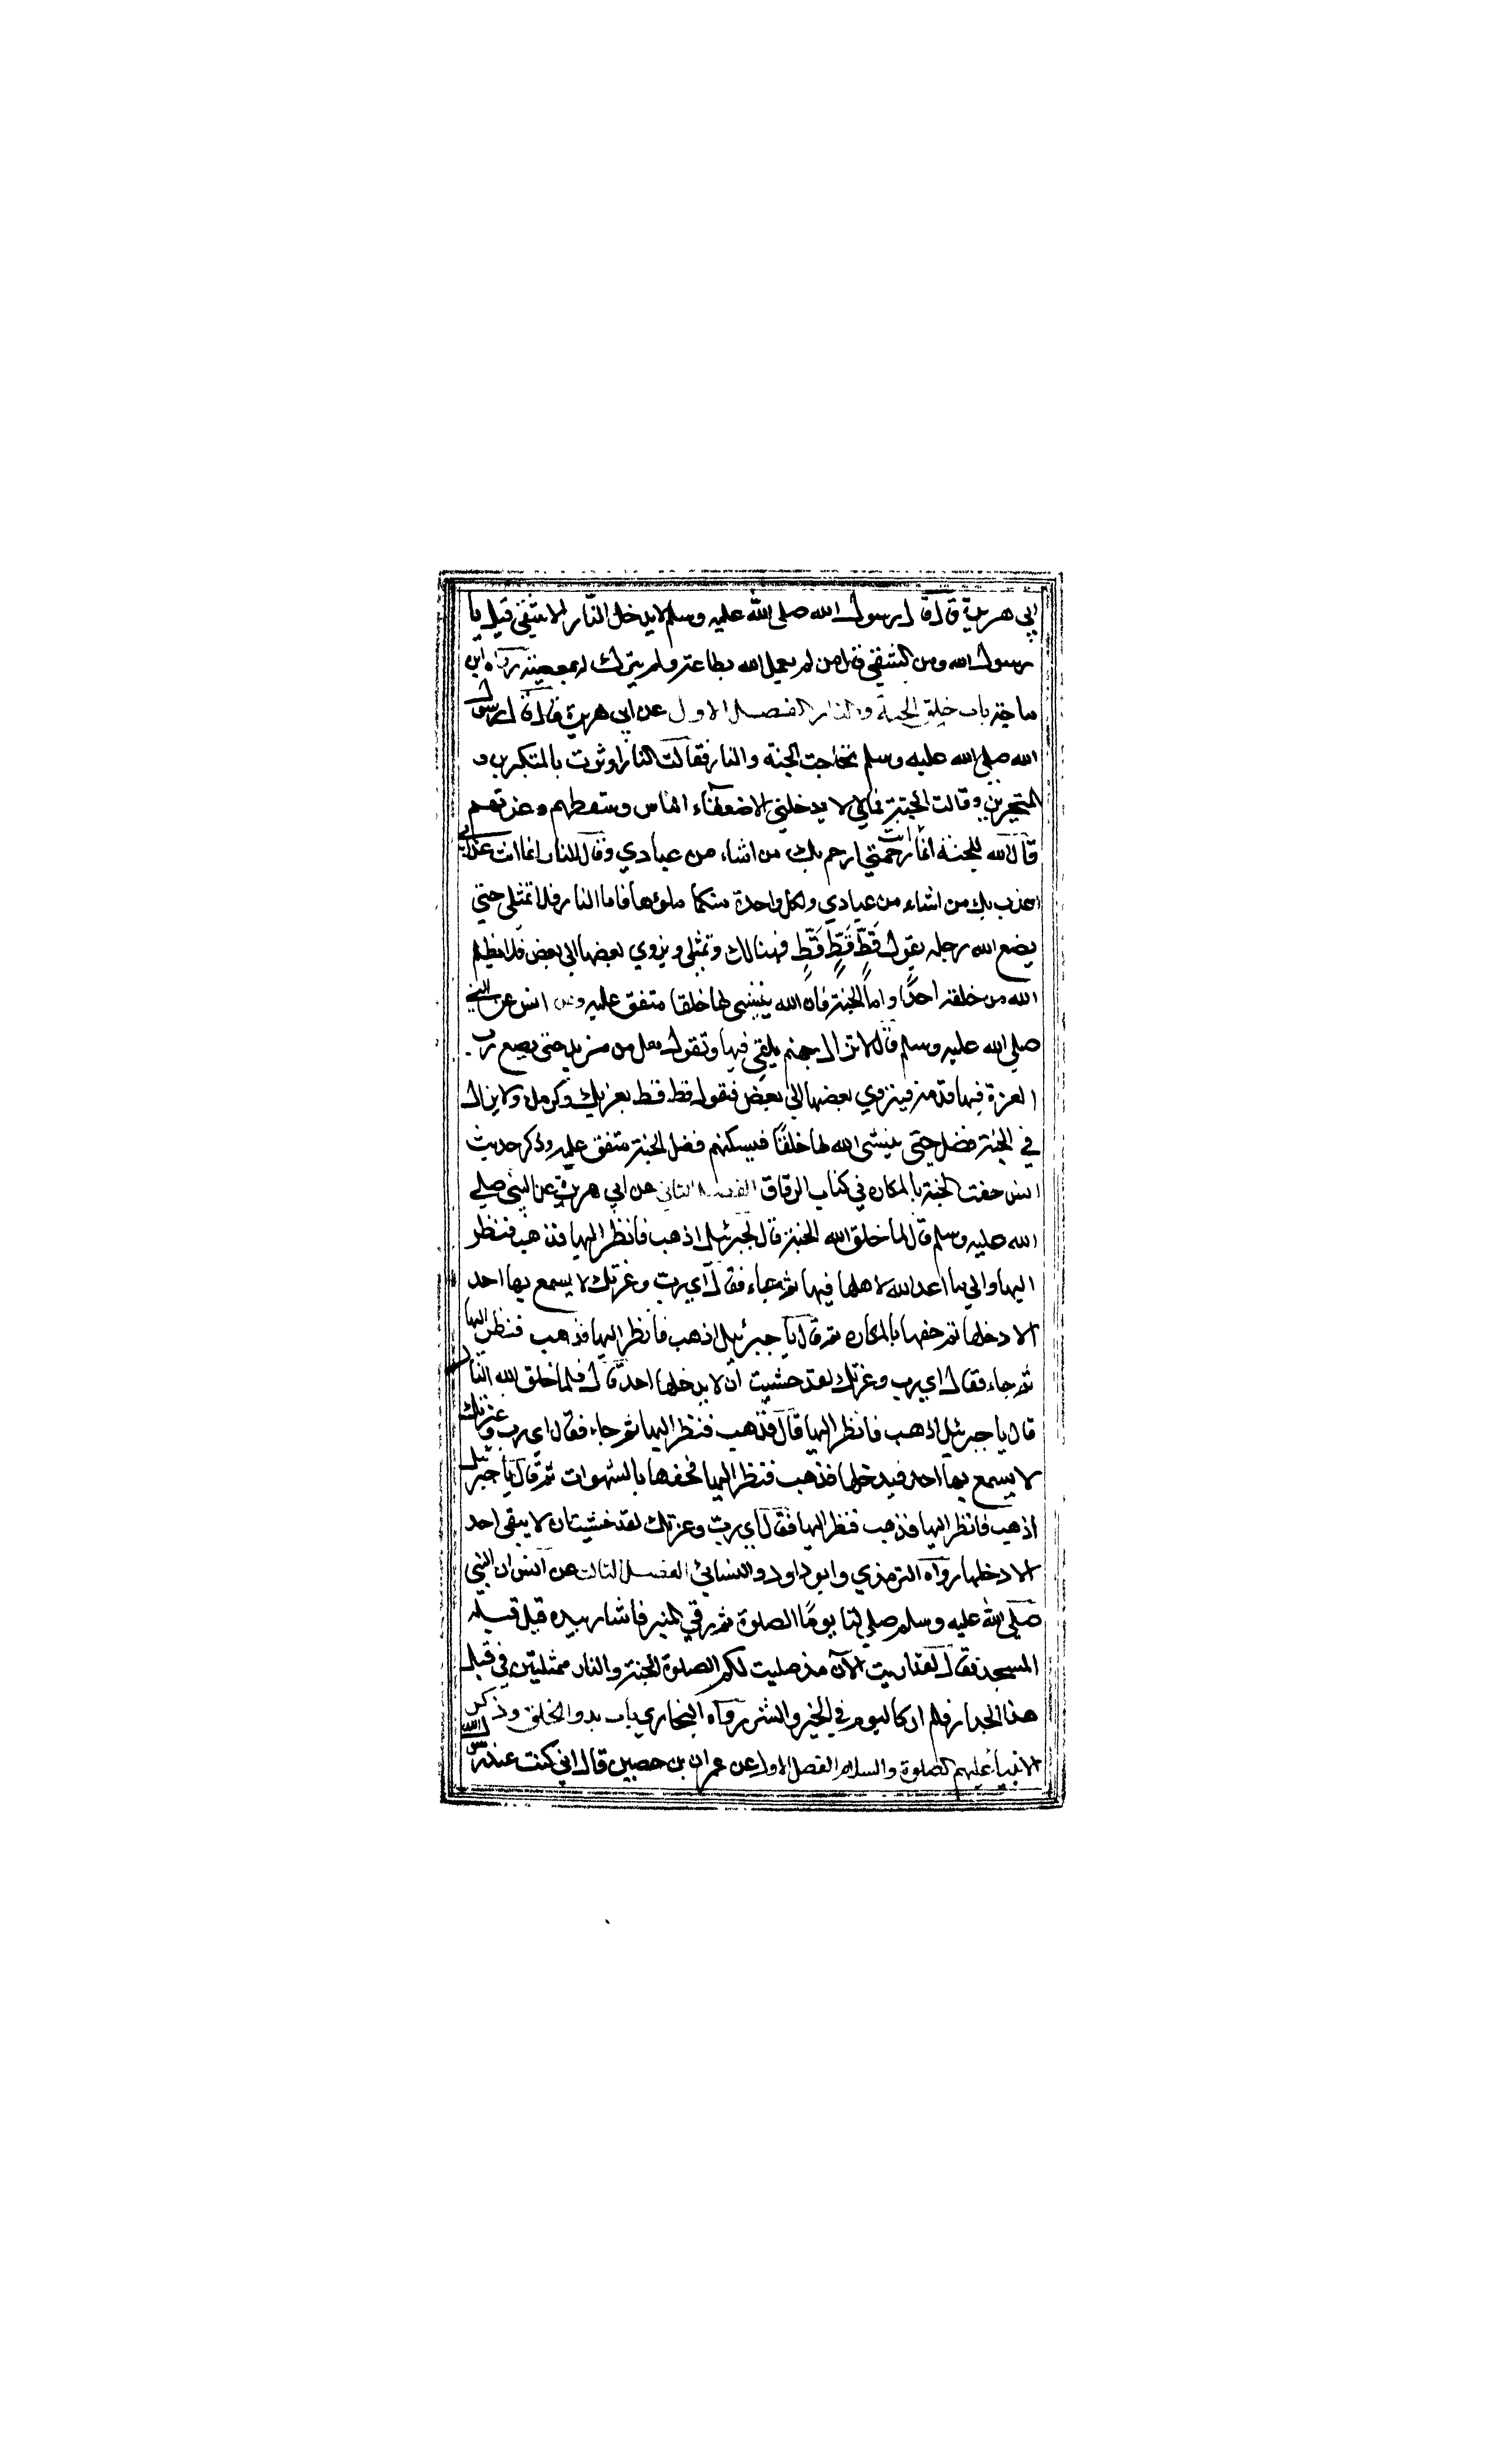 ابي هريرة قال قال رسول الله صلى الله عليه وسلم لا يدخل النار الا شقي قيل يا
رسول الله ومن الشقي قال من لم يعمل لله بطاعة ولم يترك له بمعصية رواه ابن
ماجة باب خلق الجنة والنار الفصل الاول عن ابي هريرة قال قال رسول
الله صلى الله عليه وسلم تحاجت الجنة والنار فقالت النار اوثرت بالمتكبرين و
المتجبرين وقالت الجنة فمالي لا يدخلني الا ضعفاء الناس وسقطهم وغرتهم
قال الله للجنة انما انت رحمتي ارحم بك من اشاء من عبادي وقال للنار انما انت عذابي
اعذب بك من اشاء من عبادي ولكل واحدة منكما ملؤها فاما النار فلا تمتلي حتى
يضع الله رجله يقول قط قط قط فهنالك وتمتلي ويزوي بعضها الى بعض فلا يظلم
الله من خلقه احدا واما الجنة فان الله ينشي لها خلقا متفق عليه وعن انس عن النبي
صلى الله عليه وسلم قال لا تزال جهنم يلقى فيها وتقول هل من مزيد حتى يضع رب
العزة فيها قدمه فينزوي بعضها الى بعض فتقول قط قط بعزتك وكرمك ولا يزال
في الجنة فضل حتى ينشي الله لها خلقا فيسكنهم فضل الجنة متفق عليه وذكر حديث
انس حفت الجنة بالمكاره في كتاب الرقاق الفصل الثاني عن ابي هريرة عن النبي صلى
الله عليه وسلم قال لما خلق الله الجنة قال لجبرئيل اذهب فانظر اليها فذهب فنظر
اليها والى ما اعد الله لاهلها فيها ثم جاء فقال اي رب وعزتك لا يسمع بها احد
الا دخلها ثم حفها بالمكاره ثم قال يا جبرئيل اذهب فانظر اليها فذهب فنظر اليها
ثم جاء فقال اي رب وعزتك لقد خشيت ان لا يدخلها احد قال فلما خلق الله النار
قال يا جبرئيل اذهب فانظر اليها قال فذهب فنظر اليها ثم جاء فقال اي رب وعزتك
لا يسمع بها احد فيدخلها فذهب فنظر اليها فحفها بالشهوات ثم قال يا جبرئيل
اذهب فانظر اليها فذهب فنظر اليها فقال اي رب وعزتك لقد خشيت ان لا يبقى احد
الا دخلها رواه الترمذي وابو داود والنسائي الفصل الثالث عن انس ان النبي
صلى الله عليه وسلم صلى لنا يوما الصلوة ثم رقي المنبر فاشار بيده قبل قبلة
المسجد فقال لقد اريت الآن مذ صليت لكم الصلوة الجنة والنار ممثلتين في قبل
هذا الجدار فلم ار كاليوم في الخير والشر رواه البخاري باب بدو الخلق وذكر
الانبياء عليهم الصلوة والسلام الفصل الاول عن عمران بن حصين قال اني كنت عند رسول الله